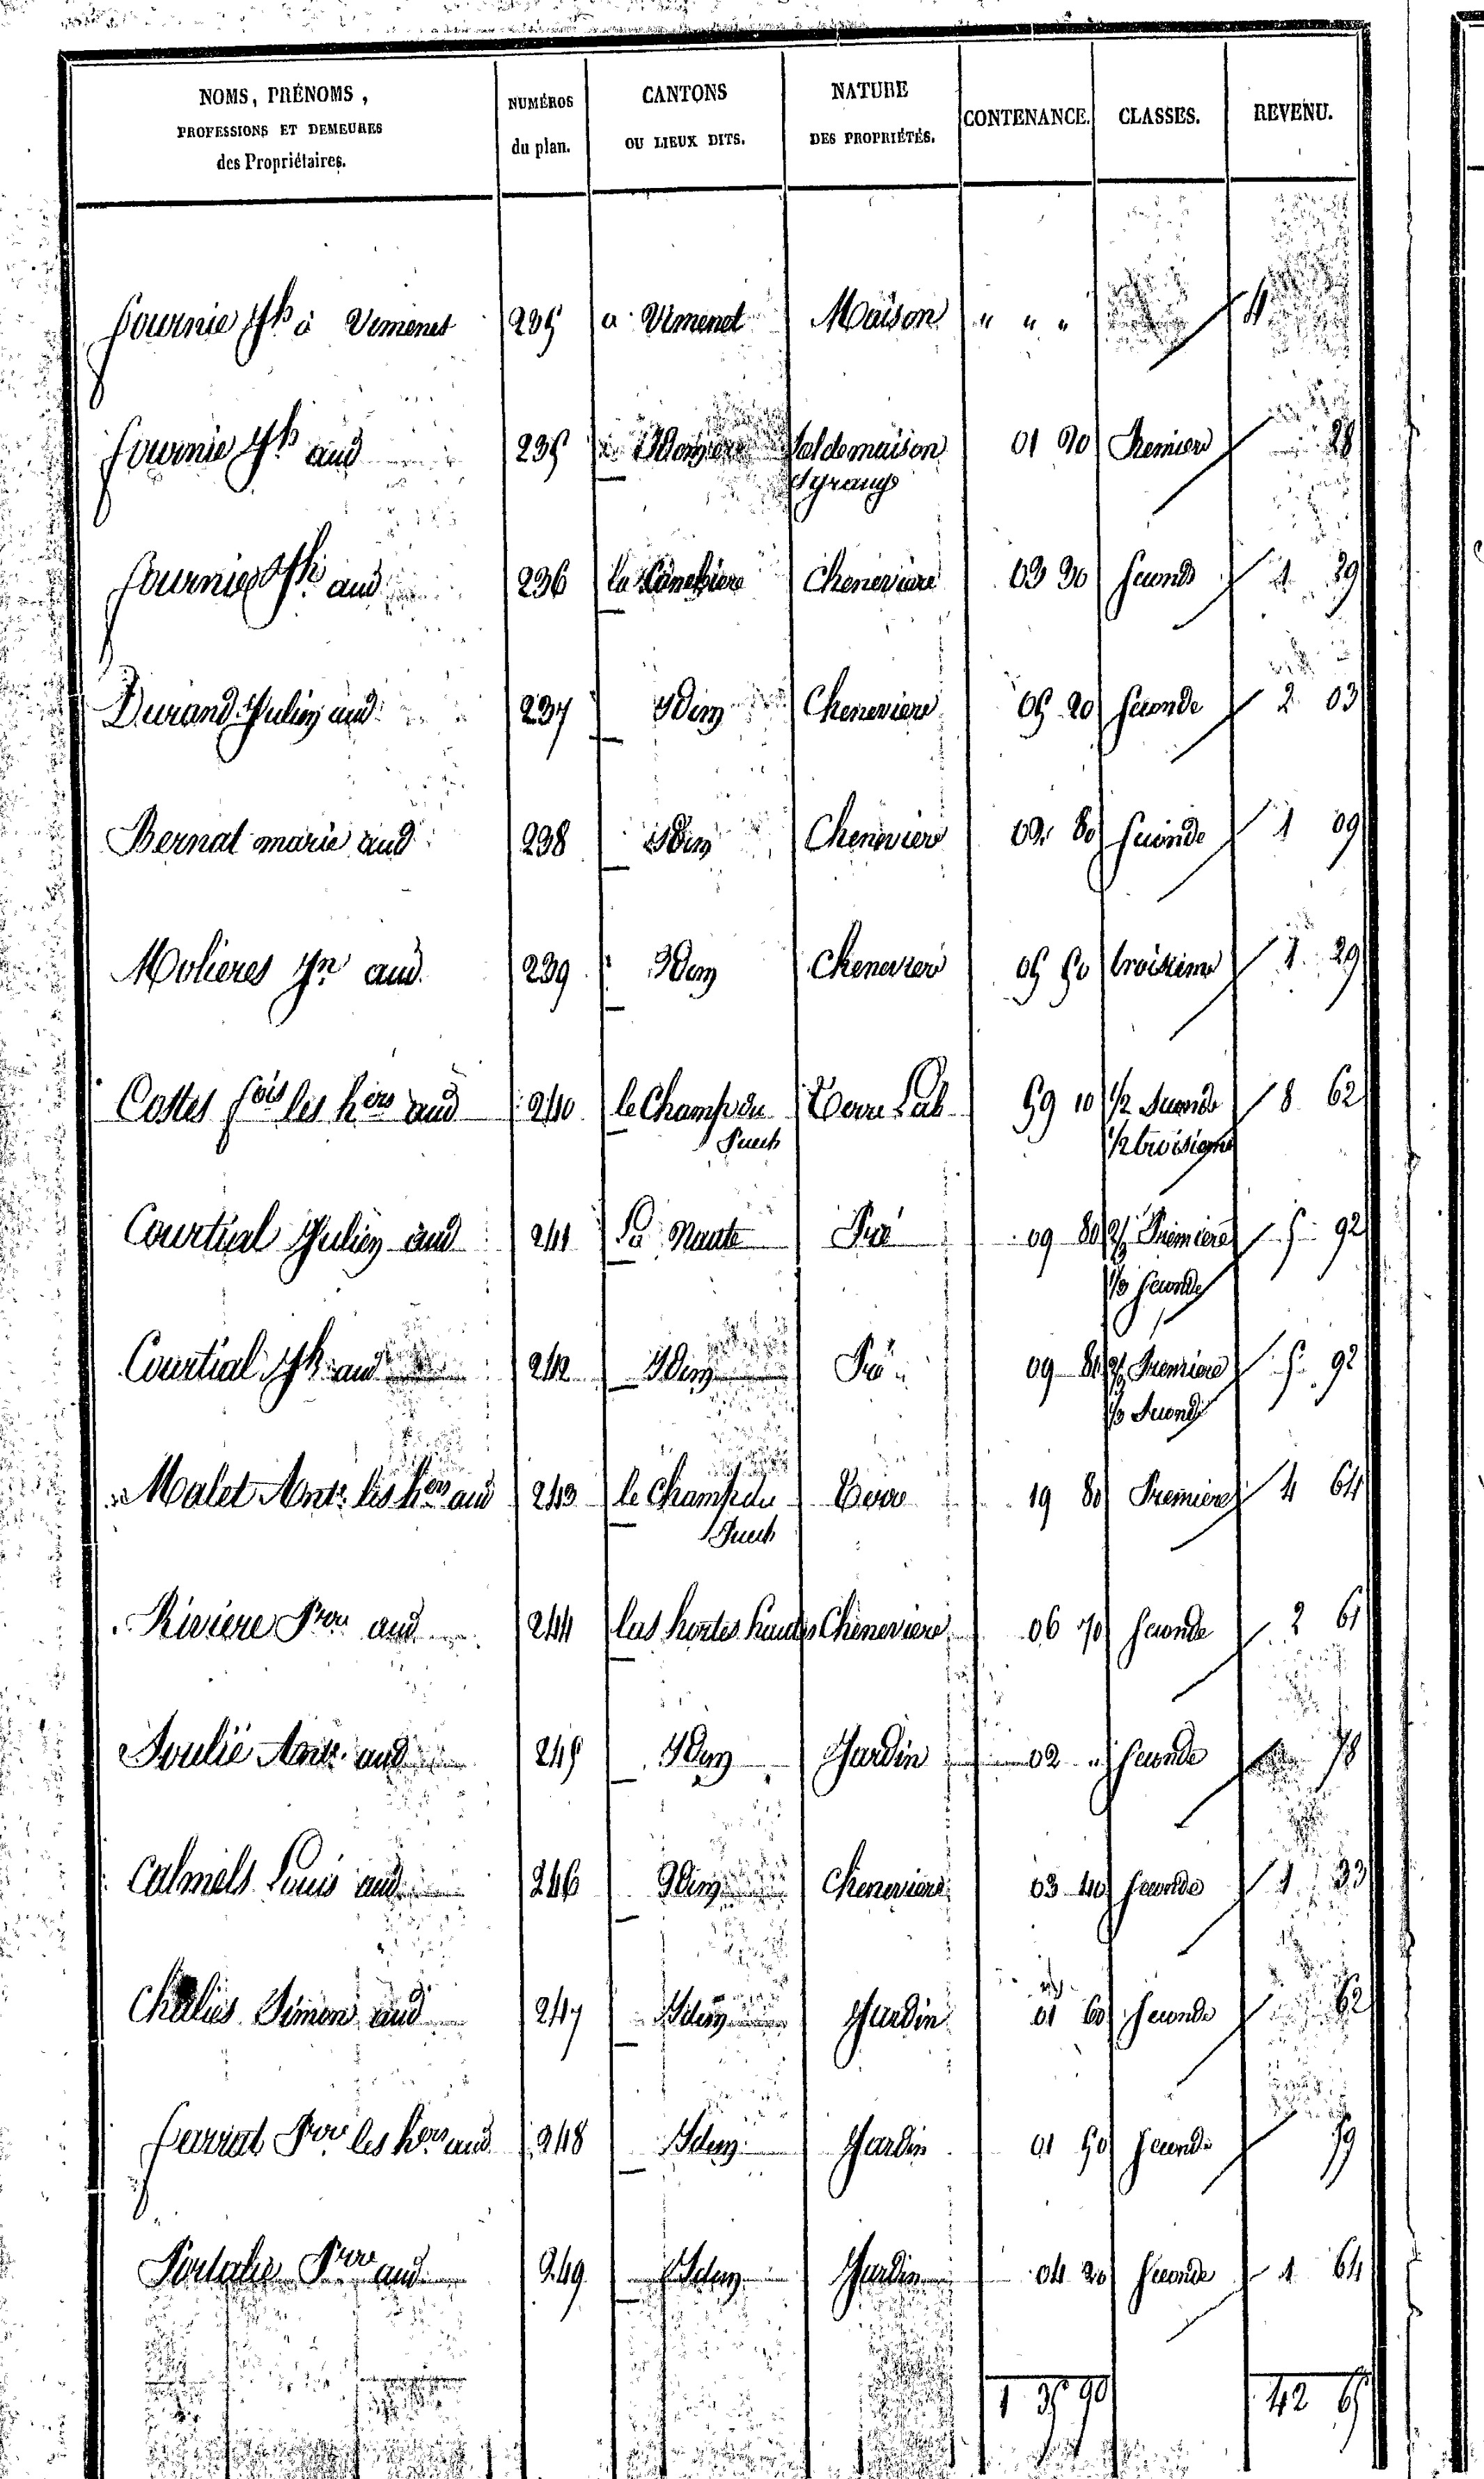 NOMS, PRÉNOMS, PROFESSIONS ET DEMEURES des Propriétaires. | NUMÉROS du plan. | CANTONS OU LIEUX DITS. | NATURE DES PROPRIÉTÉS. | CONTENANCE. | CLASSES. | REVENU.
fournie Jh à Vimenet 235 a Vimenet Maison " " " 4
fournie Jh aud 235 Sol de maison 01 90 Premiere 28
et grange
fournie Jh aud 236 la Canebiere Cheneviere 03 30 seconde 1 29
Durand Julien aud 237 Idem Cheneviere 05 20 seconde 2 03
Bernat marie aud 238 Idem Cheneviere 02 80 seconde 1 09
Molieres Jn aud 239 Idem Cheneviere 05 50 troisieme 1 29
Costes fois les hers aud 240 le Champ du Terre Lab 59 10 1/2 Seconde 8 62
Puech 1/2 troisieme
Courtial Julien aud 241 La Naute Pré 09 80 2/3 Premiere 5 92
1/3 seconde
Courtial Jh aud 242 Idem Pré 09 80 2/3 Premiere 5 92
1/3 Seconde
Malet Ante les hers aud 243 le Champ du Terre 19 80 Premiere 4 64
Puech
Riviere Pre aud 244 las hortes hautes Cheneviere 06 70 seconde 2 61
Soulié Ante aud 245 Idem Jardin 02 " seconde 78
Calmels Louis aud 246 Idem Cheneviere 03 40 seconde 1 33
Chaliés Simon aud 247 Idem Jardin 01 60 seconde 62
ferriat Pre les hers aud 248 Idem Jardin 01 50 seconde 59
Portalie Pre aud 249 Idem Jardin 04 20 seconde 1 64
1 35 90 42 65